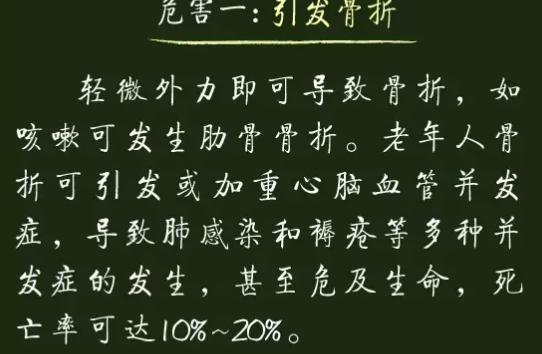 危害一：引发骨折
轻微外力即可导致骨折，如
咳嗽可发生肋骨骨折。老年人骨
折可引发或加重心脑血管并发
症，导致肺感染和褥疮等多种并
发症的发生，甚至危及生命，死
亡率可达10%~20%。